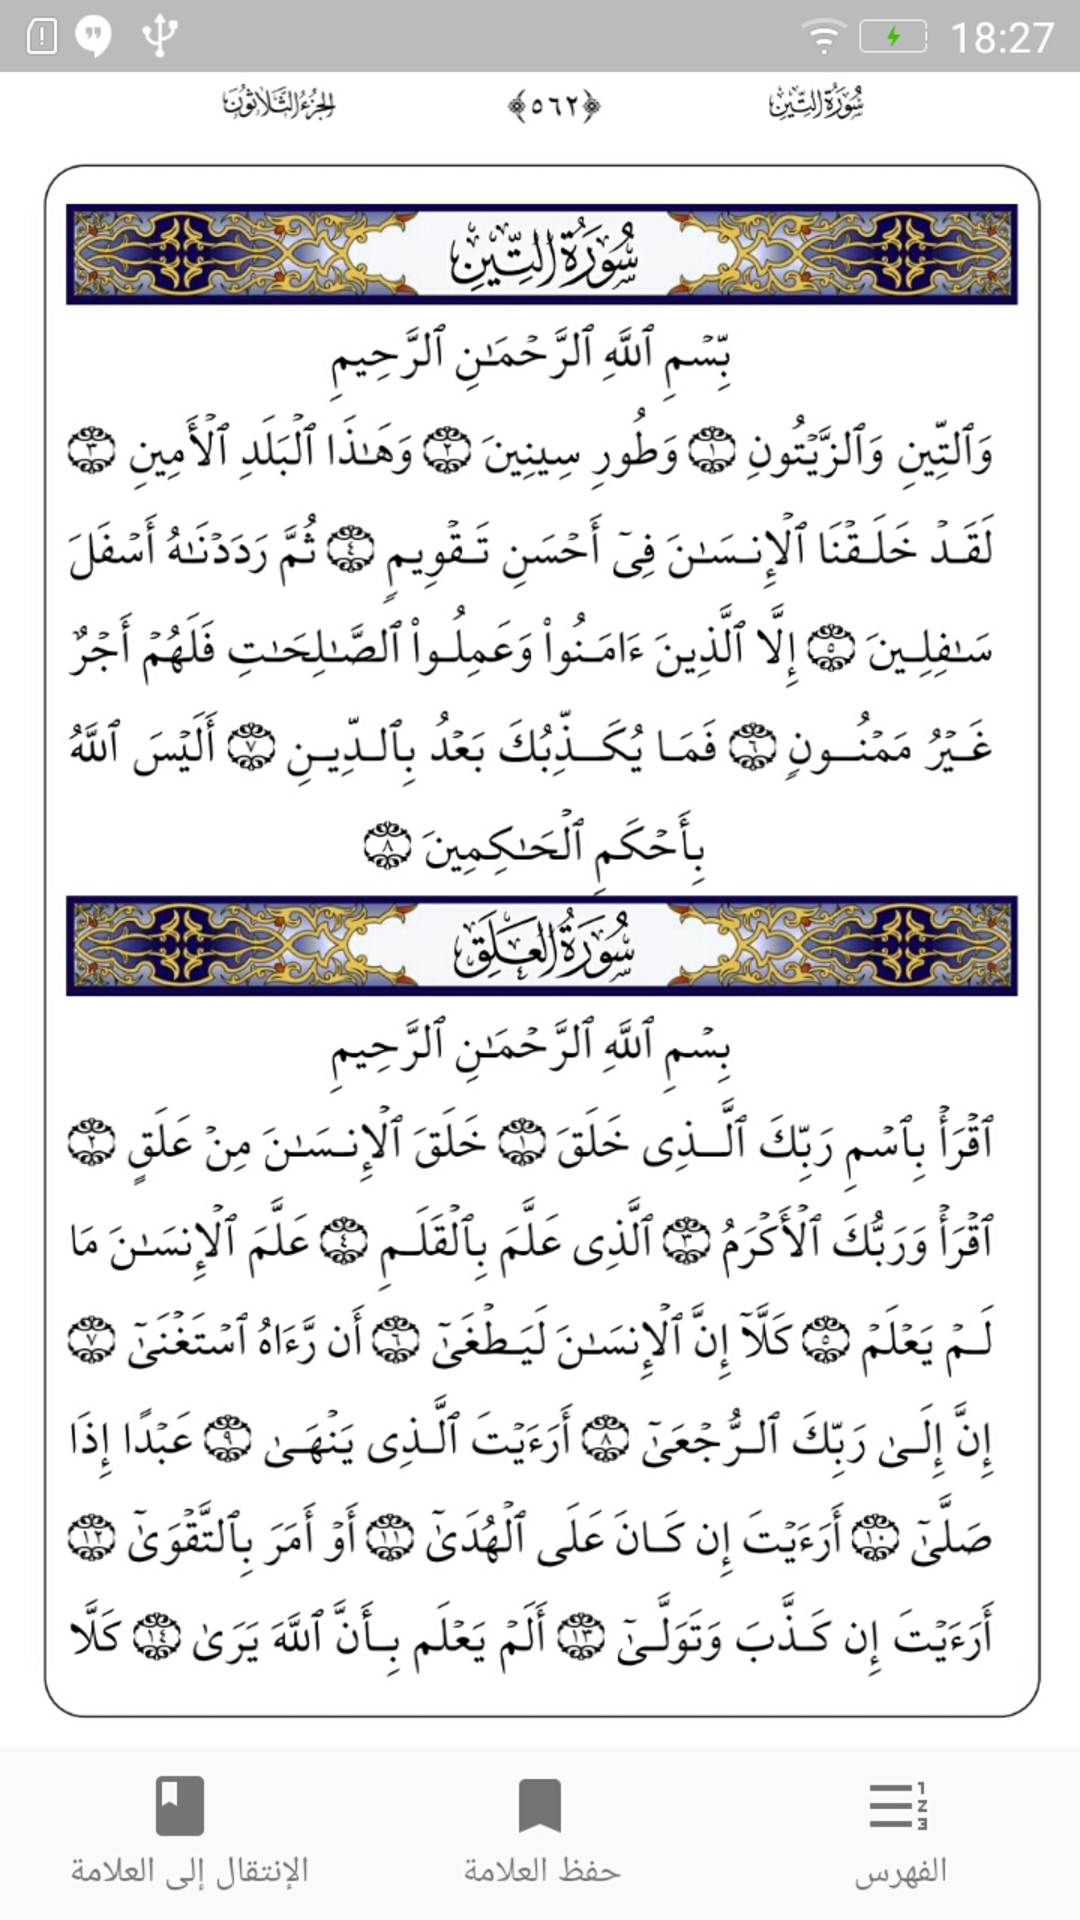 18:27
سُورَةُ التِّينِ ﴿٥٦٢﴾ الجُزْءُ الثَّلَاثُونَ
سُورَةُ التِّينِ
بِّسْمِ ٱللَّهِ ٱلرَّحْمَـٰنِ ٱلرَّحِيمِ
وَٱلتِّينِ وَٱلزَّيْتُونِ ١ وَطُورِ سِينِينَ ٢ وَهَـٰذَا ٱلْبَلَدِ ٱلْأَمِينِ ٣
لَقَدْ خَلَقْنَا ٱلْإِنسَـٰنَ فِىٓ أَحْسَنِ تَقْوِيمٍ ٤ ثُمَّ رَدَدْنَـٰهُ أَسْفَلَ
سَـٰفِلِينَ ٥ إِلَّا ٱلَّذِينَ ءَامَنُوا۟ وَعَمِلُوا۟ ٱلصَّـٰلِحَـٰتِ فَلَهُمْ أَجْرٌ
غَيْرُ مَمْنُونٍ ٦ فَمَا يُكَذِّبُكَ بَعْدُ بِٱلدِّينِ ٧ أَلَيْسَ ٱللَّهُ
بِأَحْكَمِ ٱلْحَـٰكِمِينَ ٨
سُورَةُ العَلَقِ
بِسْمِ ٱللَّهِ ٱلرَّحْمَـٰنِ ٱلرَّحِيمِ
ٱقْرَأْ بِٱسْمِ رَبِّكَ ٱلَّذِى خَلَقَ ١ خَلَقَ ٱلْإِنسَـٰنَ مِنْ عَلَقٍ ٢
ٱقْرَأْ وَرَبُّكَ ٱلْأَكْرَمُ ٣ ٱلَّذِى عَلَّمَ بِٱلْقَلَمِ ٤ عَلَّمَ ٱلْإِنسَـٰنَ مَا
لَمْ يَعْلَمْ ٥ كَلَّآ إِنَّ ٱلْإِنسَـٰنَ لَيَطْغَىٰٓ ٦ أَن رَّءَاهُ ٱسْتَغْنَىٰٓ ٧
إِنَّ إِلَىٰ رَبِّكَ ٱلرُّجْعَىٰٓ ٨ أَرَءَيْتَ ٱلَّذِى يَنْهَىٰ ٩ عَبْدًا إِذَا
صَلَّىٰٓ ١٠ أَرَءَيْتَ إِن كَانَ عَلَى ٱلْهُدَىٰٓ ١١ أَوْ أَمَرَ بِٱلتَّقْوَىٰٓ ١٢
أَرَءَيْتَ إِن كَذَّبَ وَتَوَلَّىٰٓ ١٣ أَلَمْ يَعْلَم بِأَنَّ ٱللَّهَ يَرَىٰ ١٤ كَلَّا
الفهرس
حفظ العلامة
الإنتقال إلى العلامة